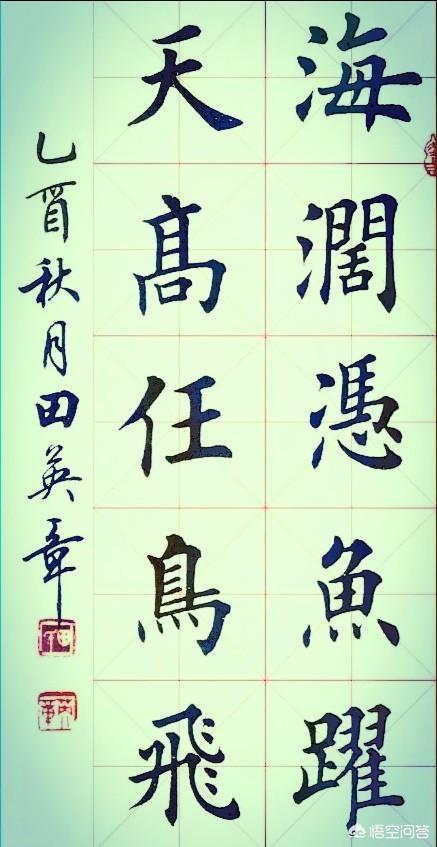 海濶憑魚躍
天髙任鳥飛
乙酉秋月田英章
悟空问答